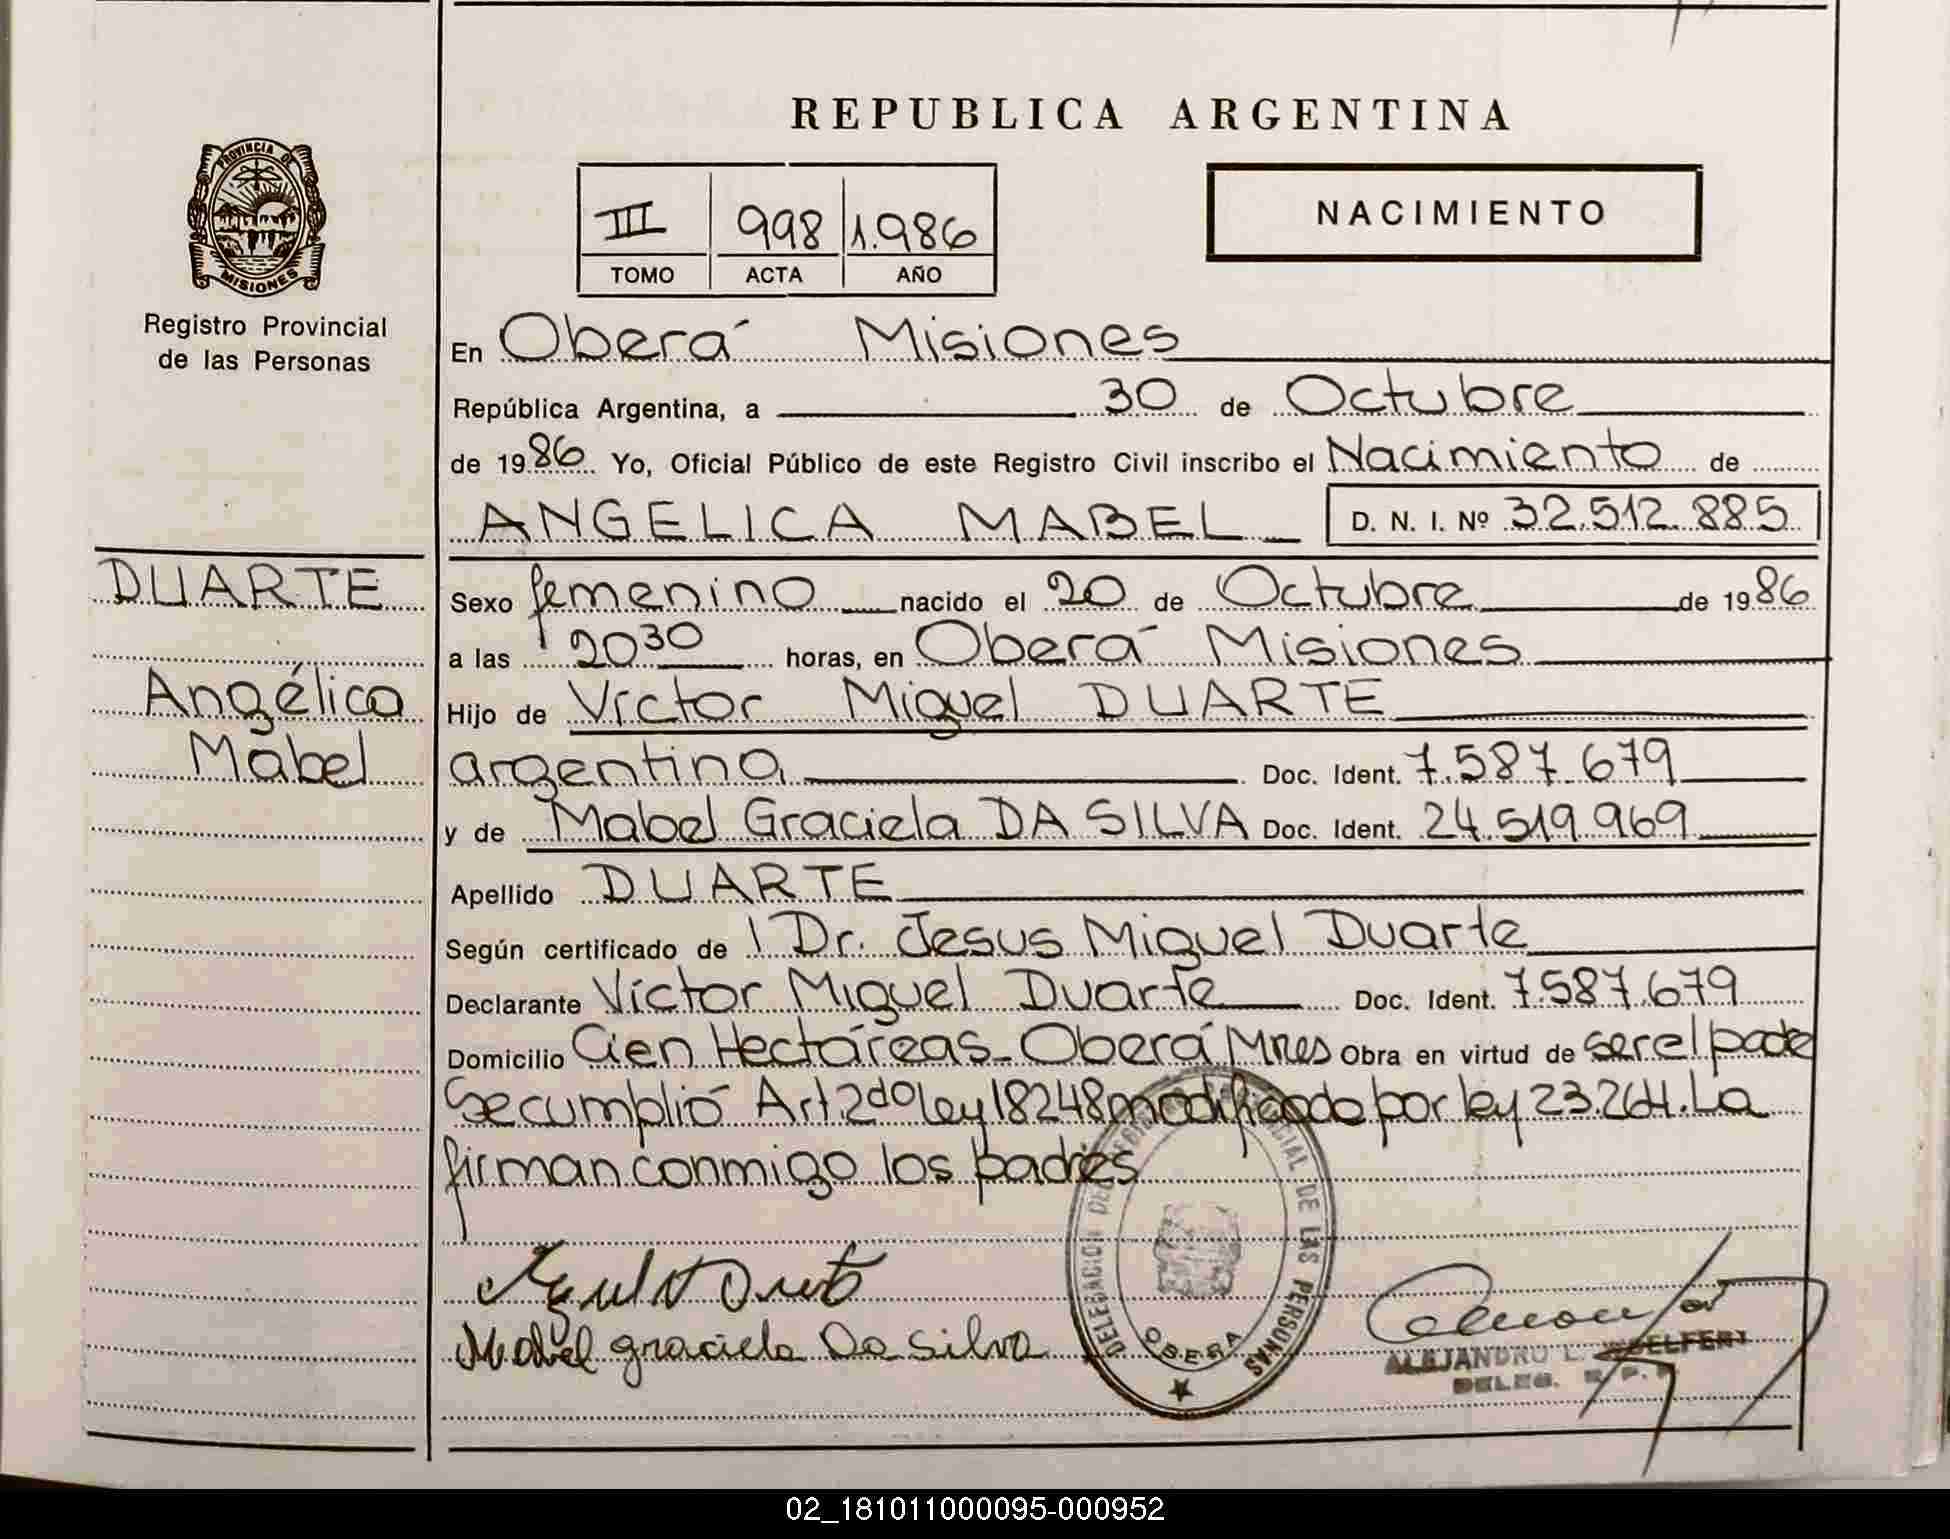 REPUBLICA ARGENTINA
PROVINCIA DE
MISIONES
Registro Provincial
de las Personas
III 998 1.986
TOMO ACTA AÑO
NACIMIENTO
En Oberá Misiones
República Argentina, a 30 de Octubre
de 1986 Yo, Oficial Público de este Registro Civil inscribo el Nacimiento de
ANGELICA MABEL D. N. I. Nº 32.512.885
DUARTE
Angélica
Mabel
Sexo femenino nacido el 20 de Octubre de 1986
a las 2030 horas, en Oberá Misiones
Hijo de Víctor Miguel DUARTE
argentina Doc. Ident. 7.587.679
y de Mabel Graciela DA SILVA Doc. Ident. 24.519.969
Apellido DUARTE
Según certificado de l Dr. Jesus Miguel Duarte
Declarante Víctor Miguel Duarte Doc. Ident. 7.587.679
Domicilio Cien Hectáreas - Oberá Mnes Obra en virtud de ser el padre
Se cumplió Art. 2do ley 18248 modificado por ley 23.264. La
firman conmigo los padres
Mabel graciela Da Silva
DELEGACION DEL REGISTRO PROVINCIAL DE LAS PERSONAS
OBERA
ALEJANDRO L.
DELEG. R. P.
02_181011000095-000952